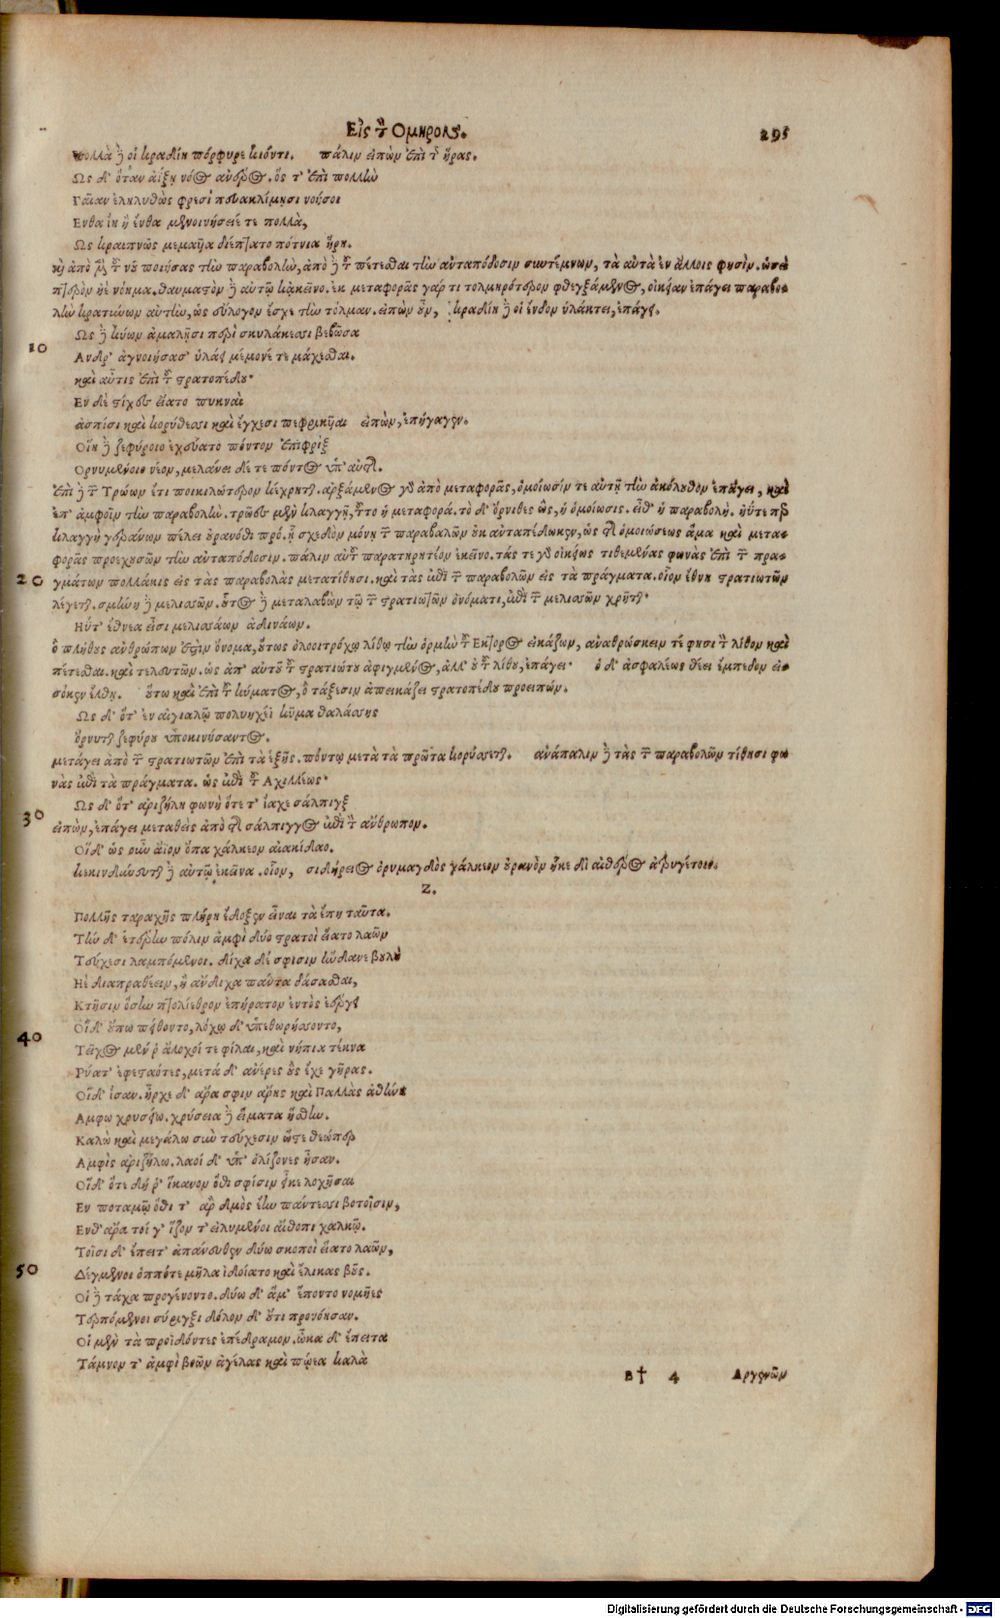 Εἰς τ̃ Ομηρον. 295
πολλὰ δέ οἱ κραδίη πόρφυρε κιόντι. πάλιν εἰπὼν ἐπὶ τ̃ ἥρας.
Ως δ' ὅταν ἀίξῃ νόος ἀνδρὸς. ὅς τ' ἐπὶ πολλὴν
Γαῖαν ἐληλυθὼς φρεσὶ πευκαλίμῃσι νοήσοι
Ενθα ἴην ἢ ἔνθα μενοινήσειέ τε πολλὰ,
Ως κραιπνῶς μεμαυῖα διέπτατο πότνια ἥρη.
καὶ ἀπὸ μὲν τοῦ νοῦ ποιήσας τὴν παραβολὴν, ἀπὸ δὲ τοῦ πέτεσθαι τὴν ἀνταπόδοσιν συντέμνων, τὰ αὐτὰ ἐν ἄλλοις φησὶν. ὡσεὶ
πτερὸν ἠὲ νόημα. θαυμαστὸν δὲ αὐτῷ κἀκεῖνο. ἐκ μεταφορᾶς γάρ τι τολμηρότερον φθεγξάμενος, οἰκείαν ἐπάγει παραβο-
λὴν κρατύνων αὐτὴν, ὡς εὔλογον ἔσχε τὴν τόλμαν. εἰπὼν οὖν, κραδίη δέ οἱ ἔνδον ὑλάκτει, ἐπάγει.
Ως δὲ κύων ἀμαλῇσι περὶ σκυλάκεσι βεβῶσα
10 Ανδρ' ἀγνοιήσασ' ὑλάει μέμονέ τε μάχεσθαι.
καὶ αὖτις ἐπὶ τοῦ στρατοπέδου·
Εν δὲ στίχες εἵατο πυκναὶ
ἀσπίσι καὶ κορύθεσι καὶ ἔγχεσι πεφρικυῖαι εἰπὼν, ἐπήγαγεν.
Οἵη δὲ ζεφύροιο ἐχεύατο πόντον ἐπιφρὶξ
Ορνυμένοιο νέον, μελάνει δέ τε πόντος ὑπ' αὐτῆς.
ἐπὶ δὲ τῶν Τρώων ἔτι ποικιλώτερον κέχρηται. ἀρξάμενος γὰρ ἀπὸ μεταφορᾶς, ὁμοίωσίν τε αὐτῇ τὴν ἀκόλουθον ἐπάγει, καὶ
ἐπ' ἀμφοῖν τὴν παραβολὴν. τρῶες μὲν κλαγγῇ, τοῦτο ἡ μεταφορά. τὸ δ' ὄρνιθες ὣς, ἡ ὁμοίωσις. εἶθ' ἡ παραβολὴ. ἠύτε περ
κλαγγὴ γεράνων πέλει οὐρανόθι πρό. ᾗ σχεδὸν μόνῃ τῶν παραβολῶν οὐκ ἀνταπέδωκεν, ὡς τῆς ὁμοιώσεως ἅμα καὶ μετα-
φορᾶς προεχουσῶν τὴν ἀνταπόδοσιν. πάλιν αὖ παρατηρητέον ἐκεῖνο. τάς τε γὰρ οἰκείως τιθεμένας φωνὰς ἐπὶ τῶν πρα-
20 γμάτων πολλάκις εἰς τὰς παραβολὰς μετατίθησι. καὶ τὰς ἐπὶ τῶν παραβολῶν εἰς τὰ πράγματα. οἷον ἔθνη στρατιωτῶν
λέγεται. σμήνη δὲ μελισσῶν. οὗτος δὲ μεταλαβὼν τῷ τῶν στρατιωτῶν ὀνόματι, ἐπὶ τῶν μελισσῶν χρῆται·
Ηύτ' ἔθνεα εἶσι μελισσάων ἀδινάων.
ὃ πλήθους ἀνθρώπων ἐστὶν ὄνομα, οὕτως ὀλοοιτρόχῳ λίθῳ τὴν ὁρμὴν τοῦ Εκτορος εἰκάζων, ἀναθρώσκειν τέ φησι τὸν λίθον καὶ
πέτεσθαι. καὶ τελευτῶν. ὡς ἀπ' αὐτοῦ τοῦ στρατιώτου ἀφιγμένος, ἀλλ' οὐ τοῦ λίθου, ἐπάγει· ὁ δ' ἀσφαλέως θέει ἔμπεδον εἰ-
σόκεν ἔλθῃ. οὕτω καὶ ἐπὶ τοῦ κύματος, ὃ τάξεσιν ἀπεικάζει στρατοπέδου προειπών.
Ως δ' ὅτ' ἐν αἰγιαλῷ πολυηχέϊ κῦμα θαλάσσης
ὄρνυται ζεφύρου ὑποκινήσαντος.
μετάγει ἀπὸ τῶν στρατιωτῶν ἐπὶ τὰ ἑξῆς. πόντῳ μετὰ τὰ πρῶτα κορύσσεται. ἀνάπαλιν δὲ τὰς τῶν παραβολῶν τίθησι φω
νὰς ἐπὶ τὰ πράγματα. ὡς ἐπὶ τοῦ Αχιλλέως·
Ως δ' ὅτ' ἀριζήλη φωνὴ ὅτε τ' ἴαχε σάλπιγξ
30 εἰπὼν, ἐπάγει μεταθεὶς ἀπὸ τῆς σάλπιγγος ἐπὶ τὸν ἄνθρωπον.
Οἵδ' ὡς οὖν ἄϊον ὄπα χάλκεον αἰακίδαο.
κεκινδύνευται δὲ αὐτῷ ἐκεῖνα. οἷον, σιδήρειος ὀρυμαγδὸς χάλκεον οὐρανὸν ἧκε δι' αἰθέρος ἀτρυγέτοιο.
Ζ.
Πολλῆς ταραχῆς πλήρη ἔδοξεν εἶναι τὰ ἔπη ταῦτα.
Τὴν δ' ἑτέρην πόλιν ἀμφὶ δύο στρατοὶ εἵατο λαῶν
Τεύχεσι λαμπόμενοι. δίχα δέ σφισιν ἥνδανε βουλὴ
Ηὲ διαπραθέειν, ἢ ἄνδιχα πάντα δάσασθαι,
Κτῆσιν ὅσην πτολίεθρον ἐπήρατον ἐντὸς ἐέργει
Οἵδ' οὔπω πείθοντο, λόχῳ δ' ὑπεθωρήσσοντο,
40 Τεῖχος μέν ῥ' ἄλοχοί τε φίλαι, καὶ νήπια τέκνα
Ρύατ' ἐφεσταότες, μετά δ' ἀνέρες οὓς ἔχε γῆρας.
Οἵδ' ἴσαν. ἦρχε δ' ἄρα σφιν ἄρης καὶ Παλλὰς ἀθήνη
Αμφω χρυσείω. χρύσεια δὲ εἵματα ἥσθην.
Καλὼ καὶ μεγάλω σὺν τεύχεσιν ὥστε θεώπερ
Αμφὶς ἀριζήλω. λαοὶ δ' ὑπ' ὀλίζονες ἦσαν.
Οἵδ' ὅτε δή ῥ' ἵκανον ὅθι σφίσιν εἶκε λοχῆσαι
Εν ποταμῷ ὅθι τ' ἀρδμὸς ἔην πάντεσσι βοτοῖσιν,
Ενθ' ἄρα τοί γ' ἵζον τ' εἰλυμένοι αἴθοπι χαλκῷ.
Τοῖσι δ' ἔπειτ' ἀπάνευθεν δύω σκοποὶ εἵατο λαῶν,
50 Δέγμενοι ὁππότε μῆλα ἰδοίατο καὶ ἕλικας βοῦς.
Οἱ δὲ τάχα προγένοντο. δύω δ' ἅμ' ἕποντο νομῆες
Τερπόμενοι σύριγξι δόλον δ' οὔτι προνόησαν.
Οἱ μὲν τὰ προϊδόντες ἐπέδραμον. ὦκα δ' ἔπειτα
Τάμνον τ' ἀμφὶ βοῶν ἀγέλας καὶ πώεα καλὰ
B† 4 Αργεννῶν
Digitalisierung gefördert durch die Deutsche Forschungsgemeinschaft - DFG